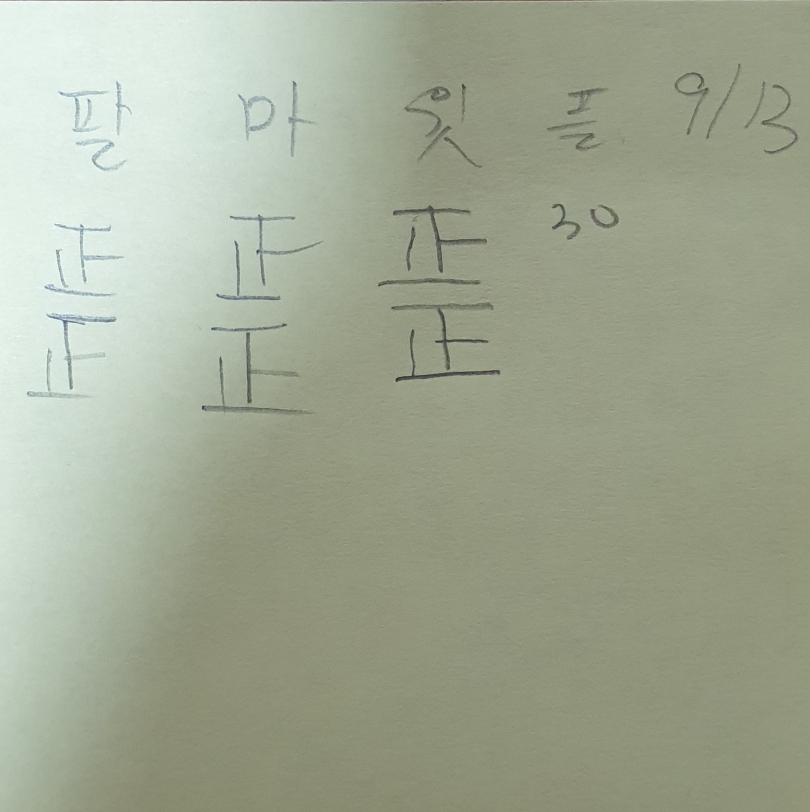 팔 마 윗 플 9/13
正 正 正 30
正 正 正